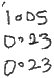 1.005
0.23
0.23